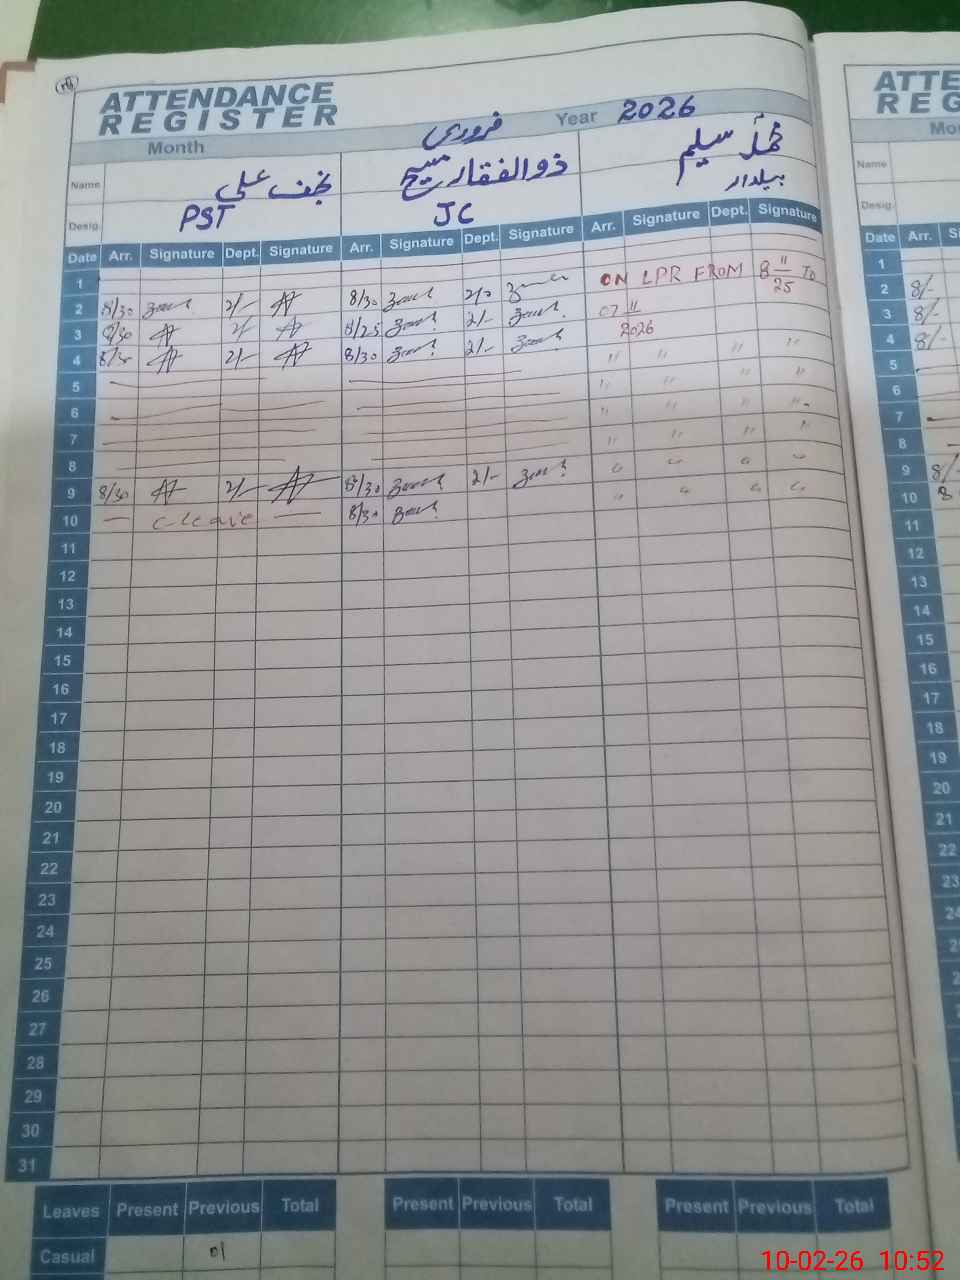 ATTENDANCE
REGISTER
Month فروری Year 2026
Name نجف علی ذوالفقار مسیح محمد سلیم
Desig. PST JC بیلدار
Date Arr. Signature Dept. Signature Arr. Signature Dept. Signature Arr. Signature Dept. Signature
1 ON LPR FROM 8 11/25 TO
2 8/30 2/- 8/30 2/- 07 11
3 8/30 2/- 8/25 2/- 2026
4 8/30 2/- 8/30 2/- " " " "
5 " " " "
6 " " " "
7 " " " "
8 " " " "
9 8/30 2/- 8/30 2/- " " " "
10 — C leave — 8/30
11
12
13
14
15
16
17
18
19
20
21
22
23
24
25
26
27
28
29
30
31
Leaves Present Previous Total Present Previous Total Present Previous Total
Casual 01
ATTE
REG
Mo
Name
Desig.
Date Arr. Si
1
2 8/-
3 8/-
4 8/-
5
6
7
8
9 8/-
10 8
11
12
13
14
15
16
17
18
19
20
21
22
23
24
10-02-26 10:52